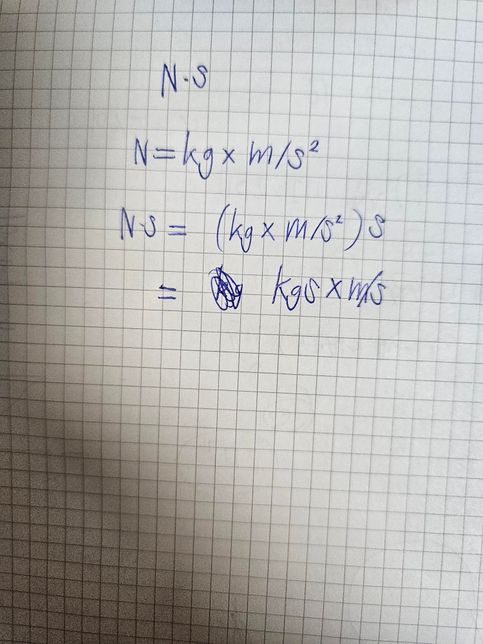 N·s
N = kg x m/s²
N·s = (kg x m/s²) s
= kgs x m/s